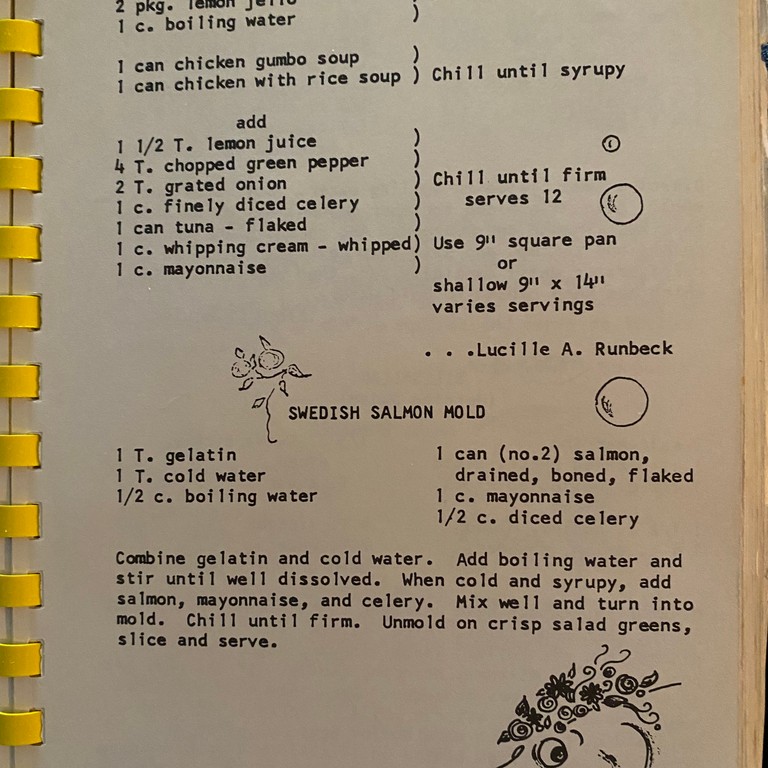 2 pkg. lemon jello )
1 c. boiling water )
1 can chicken gumbo soup )
1 can chicken with rice soup ) Chill until syrupy
add
1 1/2 T. lemon juice )
4 T. chopped green pepper )
2 T. grated onion ) Chill until firm
1 c. finely diced celery ) serves 12
1 can tuna - flaked )
1 c. whipping cream - whipped) Use 9" square pan
1 c. mayonnaise ) or
shallow 9" x 14"
varies servings
. . .Lucille A. Runbeck
SWEDISH SALMON MOLD
1 T. gelatin
1 T. cold water
1/2 c. boiling water
1 can (no.2) salmon,
drained, boned, flaked
1 c. mayonnaise
1/2 c. diced celery
Combine gelatin and cold water. Add boiling water and
stir until well dissolved. When cold and syrupy, add
salmon, mayonnaise, and celery. Mix well and turn into
mold. Chill until firm. Unmold on crisp salad greens,
slice and serve.